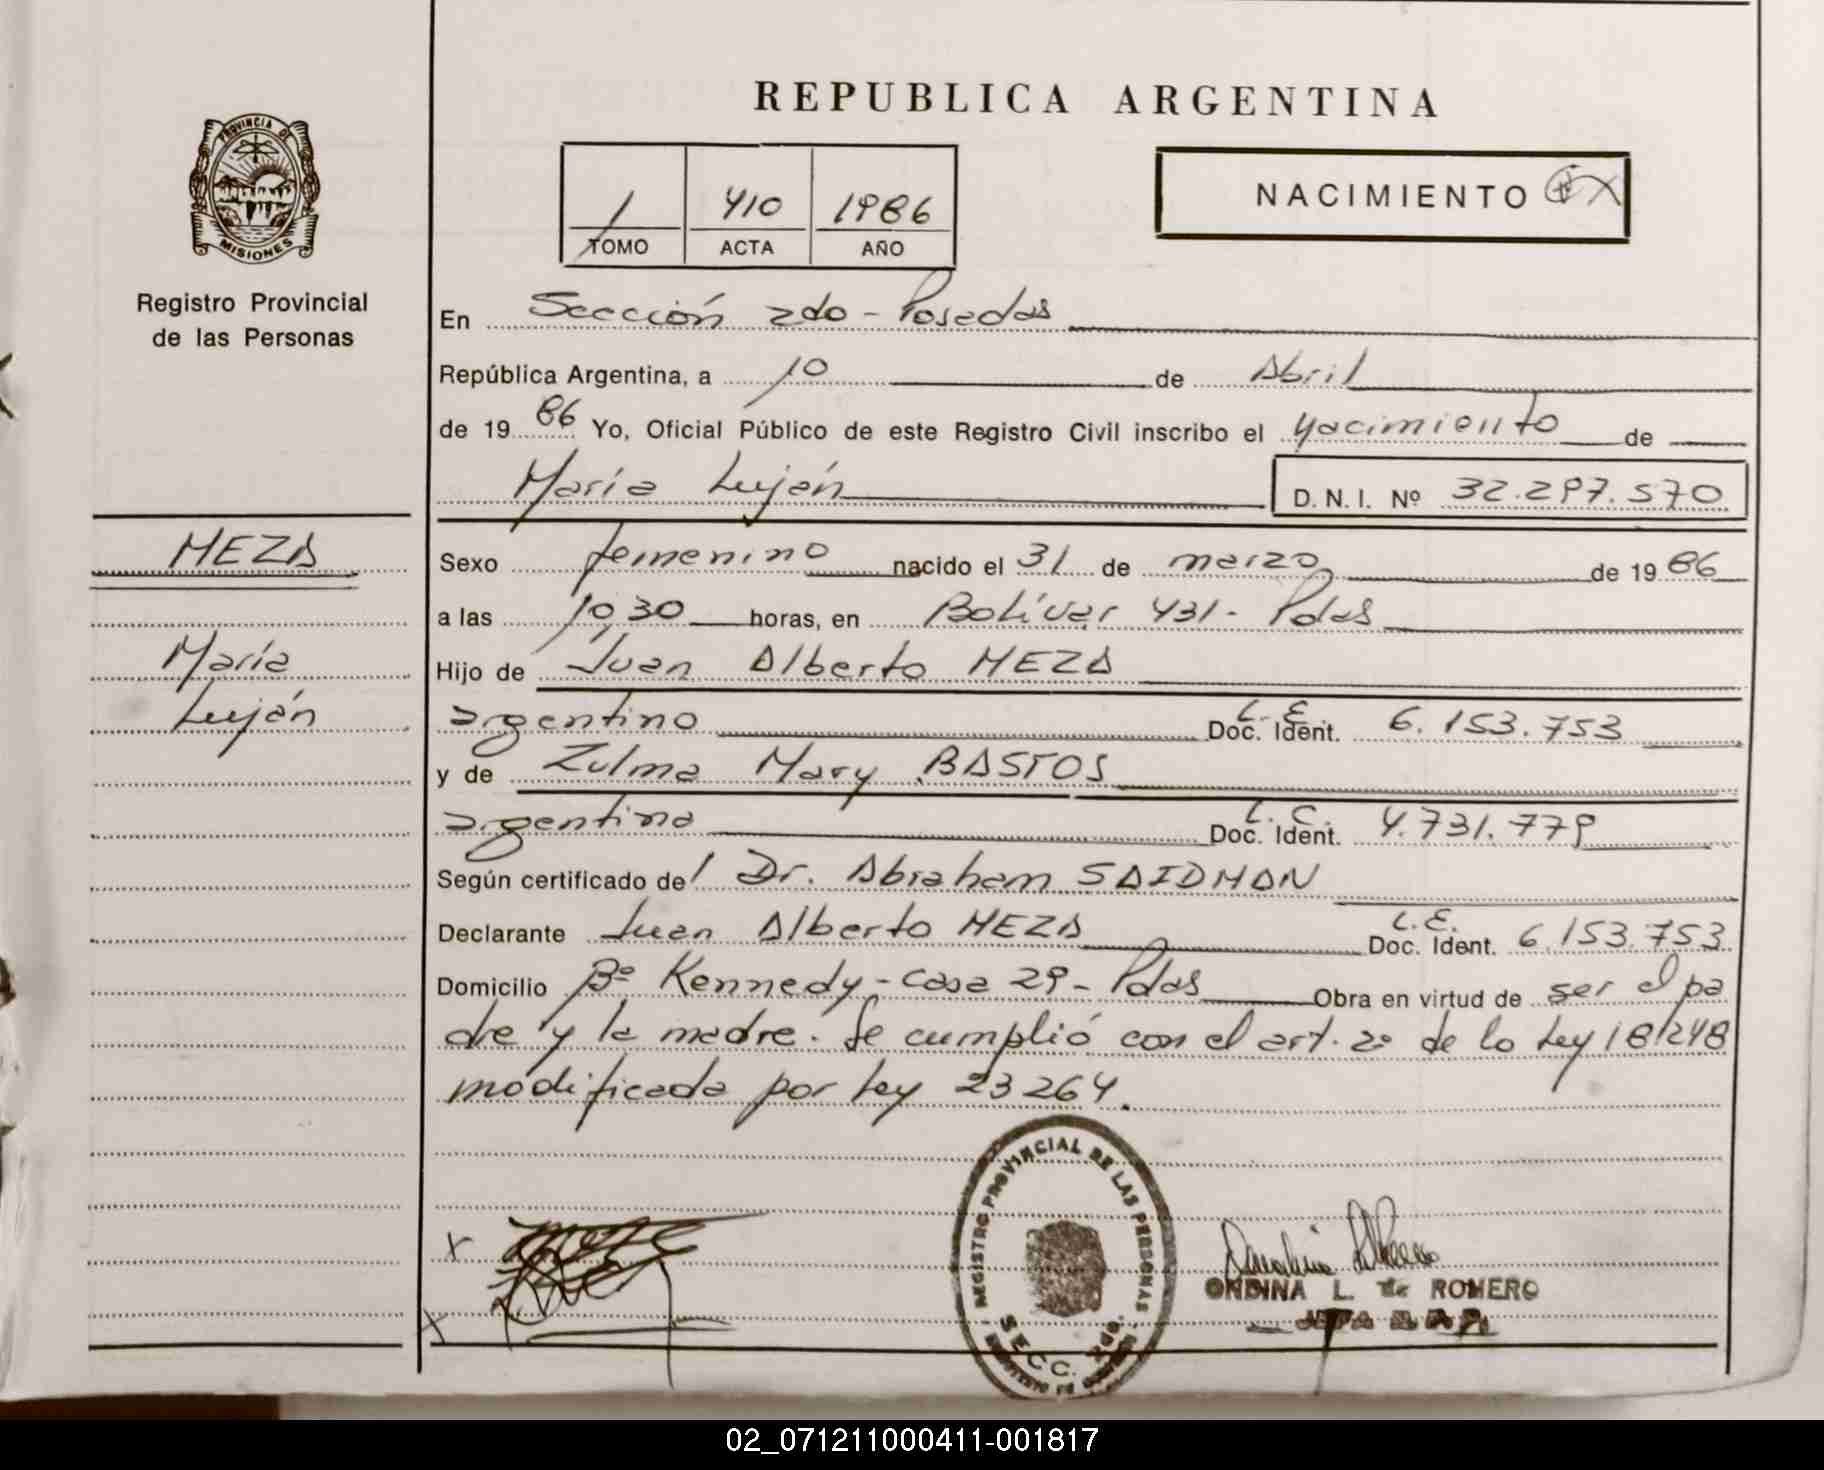 REPUBLICA ARGENTINA
PROVINCIA DE
MISIONES
Registro Provincial
de las Personas
1 410 1986
TOMO ACTA AÑO
NACIMIENTO
En Sección 2do - Posadas
República Argentina, a 10 de Abril
de 19 86 Yo, Oficial Público de este Registro Civil inscribo el nacimiento de
María Luján D. N. I. Nº 32.297.570
MEZA
María
Luján
Sexo femenino nacido el 31 de marzo de 19 86
a las 10,30 horas, en Bolívar 431 - Pdas
Hijo de Juan Alberto MEZA
argentino L. E. Doc. Ident. 6.153.753
y de Zulma Mary BASTOS
argentina L. C. Doc. Ident. 4.731.779
Según certificado del Dr. Abraham SAIDMAN
Declarante Juan Alberto MEZA L.E. Doc. Ident. 6.153.753
Domicilio Bº Kennedy - casa 29 - Pdas Obra en virtud de ser el pa
dre y la madre. Se cumplió con el art. 2º de la Ley 18248
modificada por Ley 23264.
REGISTRO PROVINCIAL DE LAS PERSONAS
SECC. 2do.
X
X
ONDINA L. de ROMERO